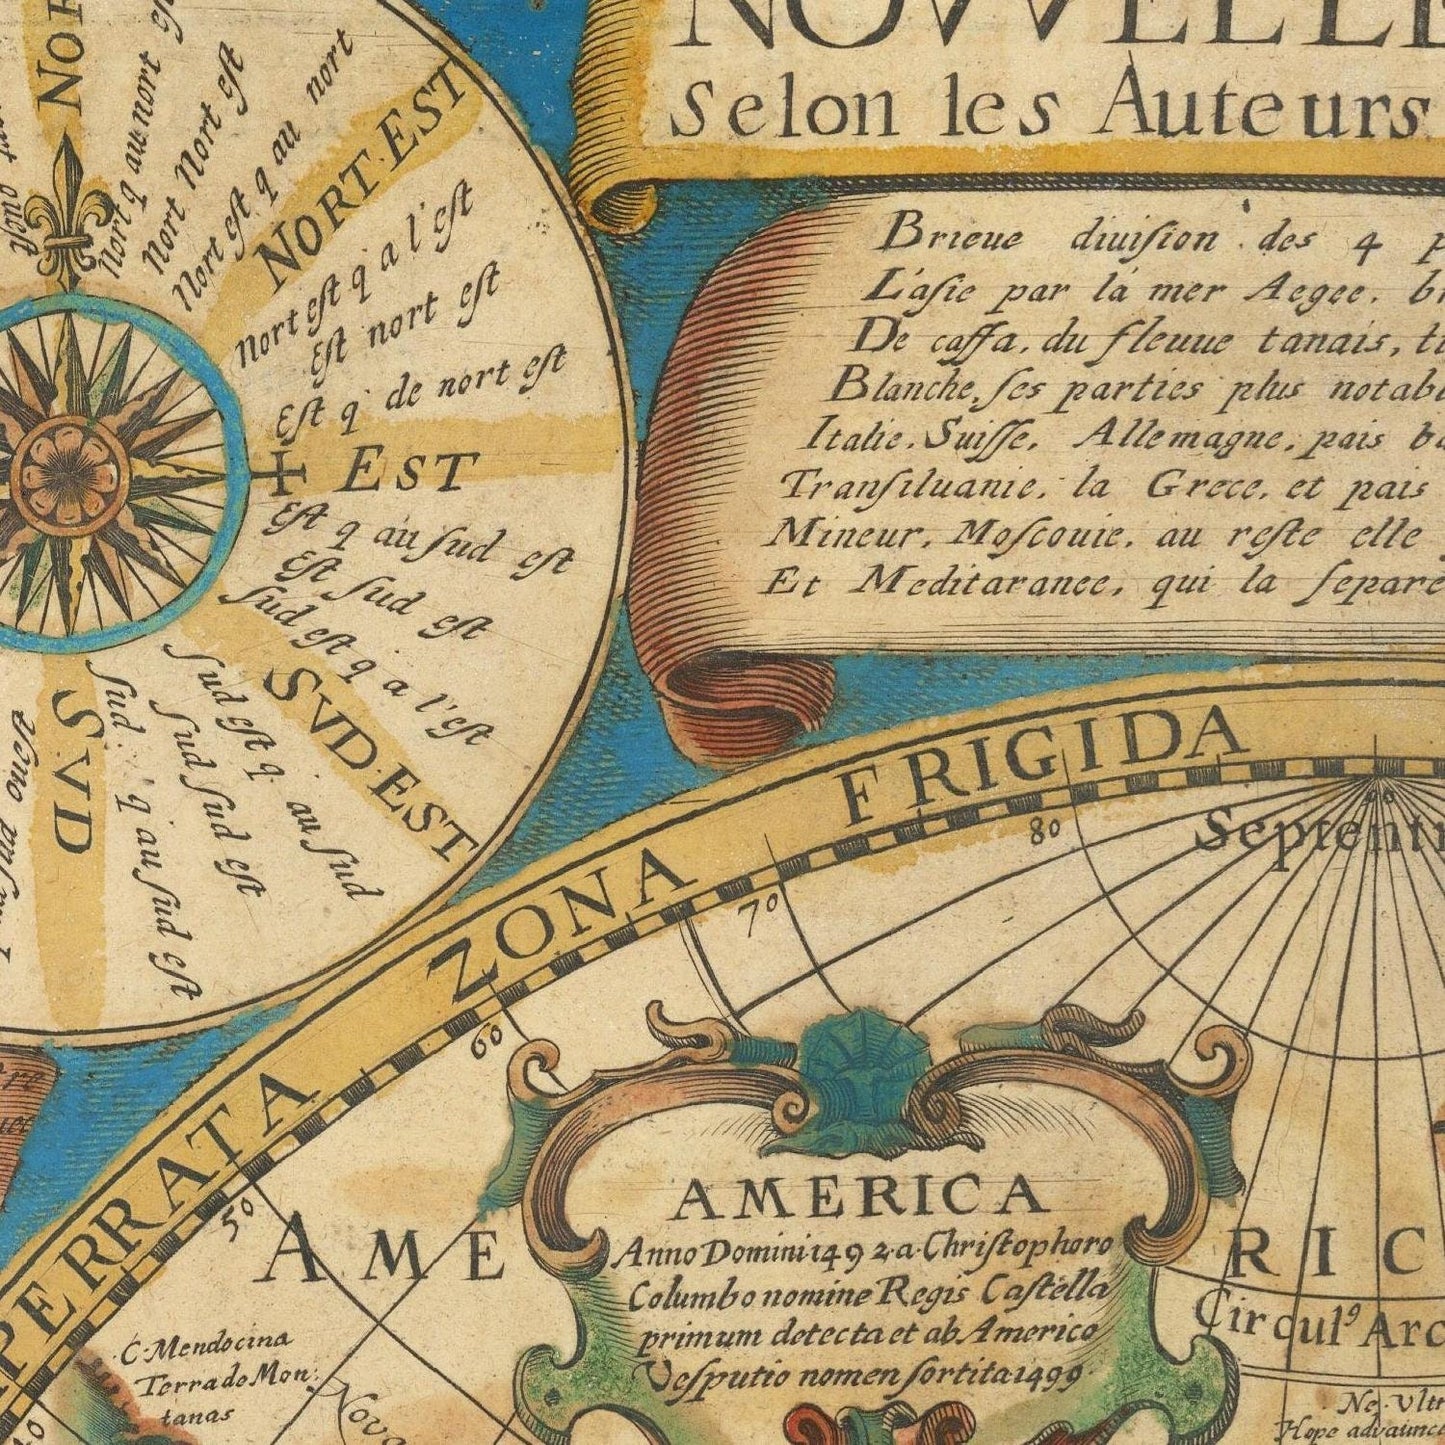 NOVVELLE
Selon les Auteurs
Brieue diuision des 4
L'asie par la mer Aegee.
De caffa, du fleuue tanais,
Blanche, ses parties plus notab
Italie. Suisse. Allemagne. pais
Transiluanie. la Grece. et pais
Mineur. Moscouie. au reste elle
Et Meditaranee, qui la separe
NOR
Nort q au nort est
Nort Nort est
Nort est q au nort
NORT·EST
nort est q a l'est
Est nort est
Est q de nort est
EST
Est q au sud est
Est sud est
sud est q a l'est
SVD·EST
sud est q au sud
sud sud est
sud q au sud est
SVD
PERRATA ZONA FRIGIDA
80
70
60
50
40
Septentr
AMERICA
Anno Domini 1492 a Christophoro
Columbo nomine Regis Castella
primum detecta et ab Americo
Vesputio nomen sortita 1499
AME RIC
Circul⁹ Arc
C. Mendocina
Terra de Mon
tanas
Nova
Ne. Vltr
Hope advaunc